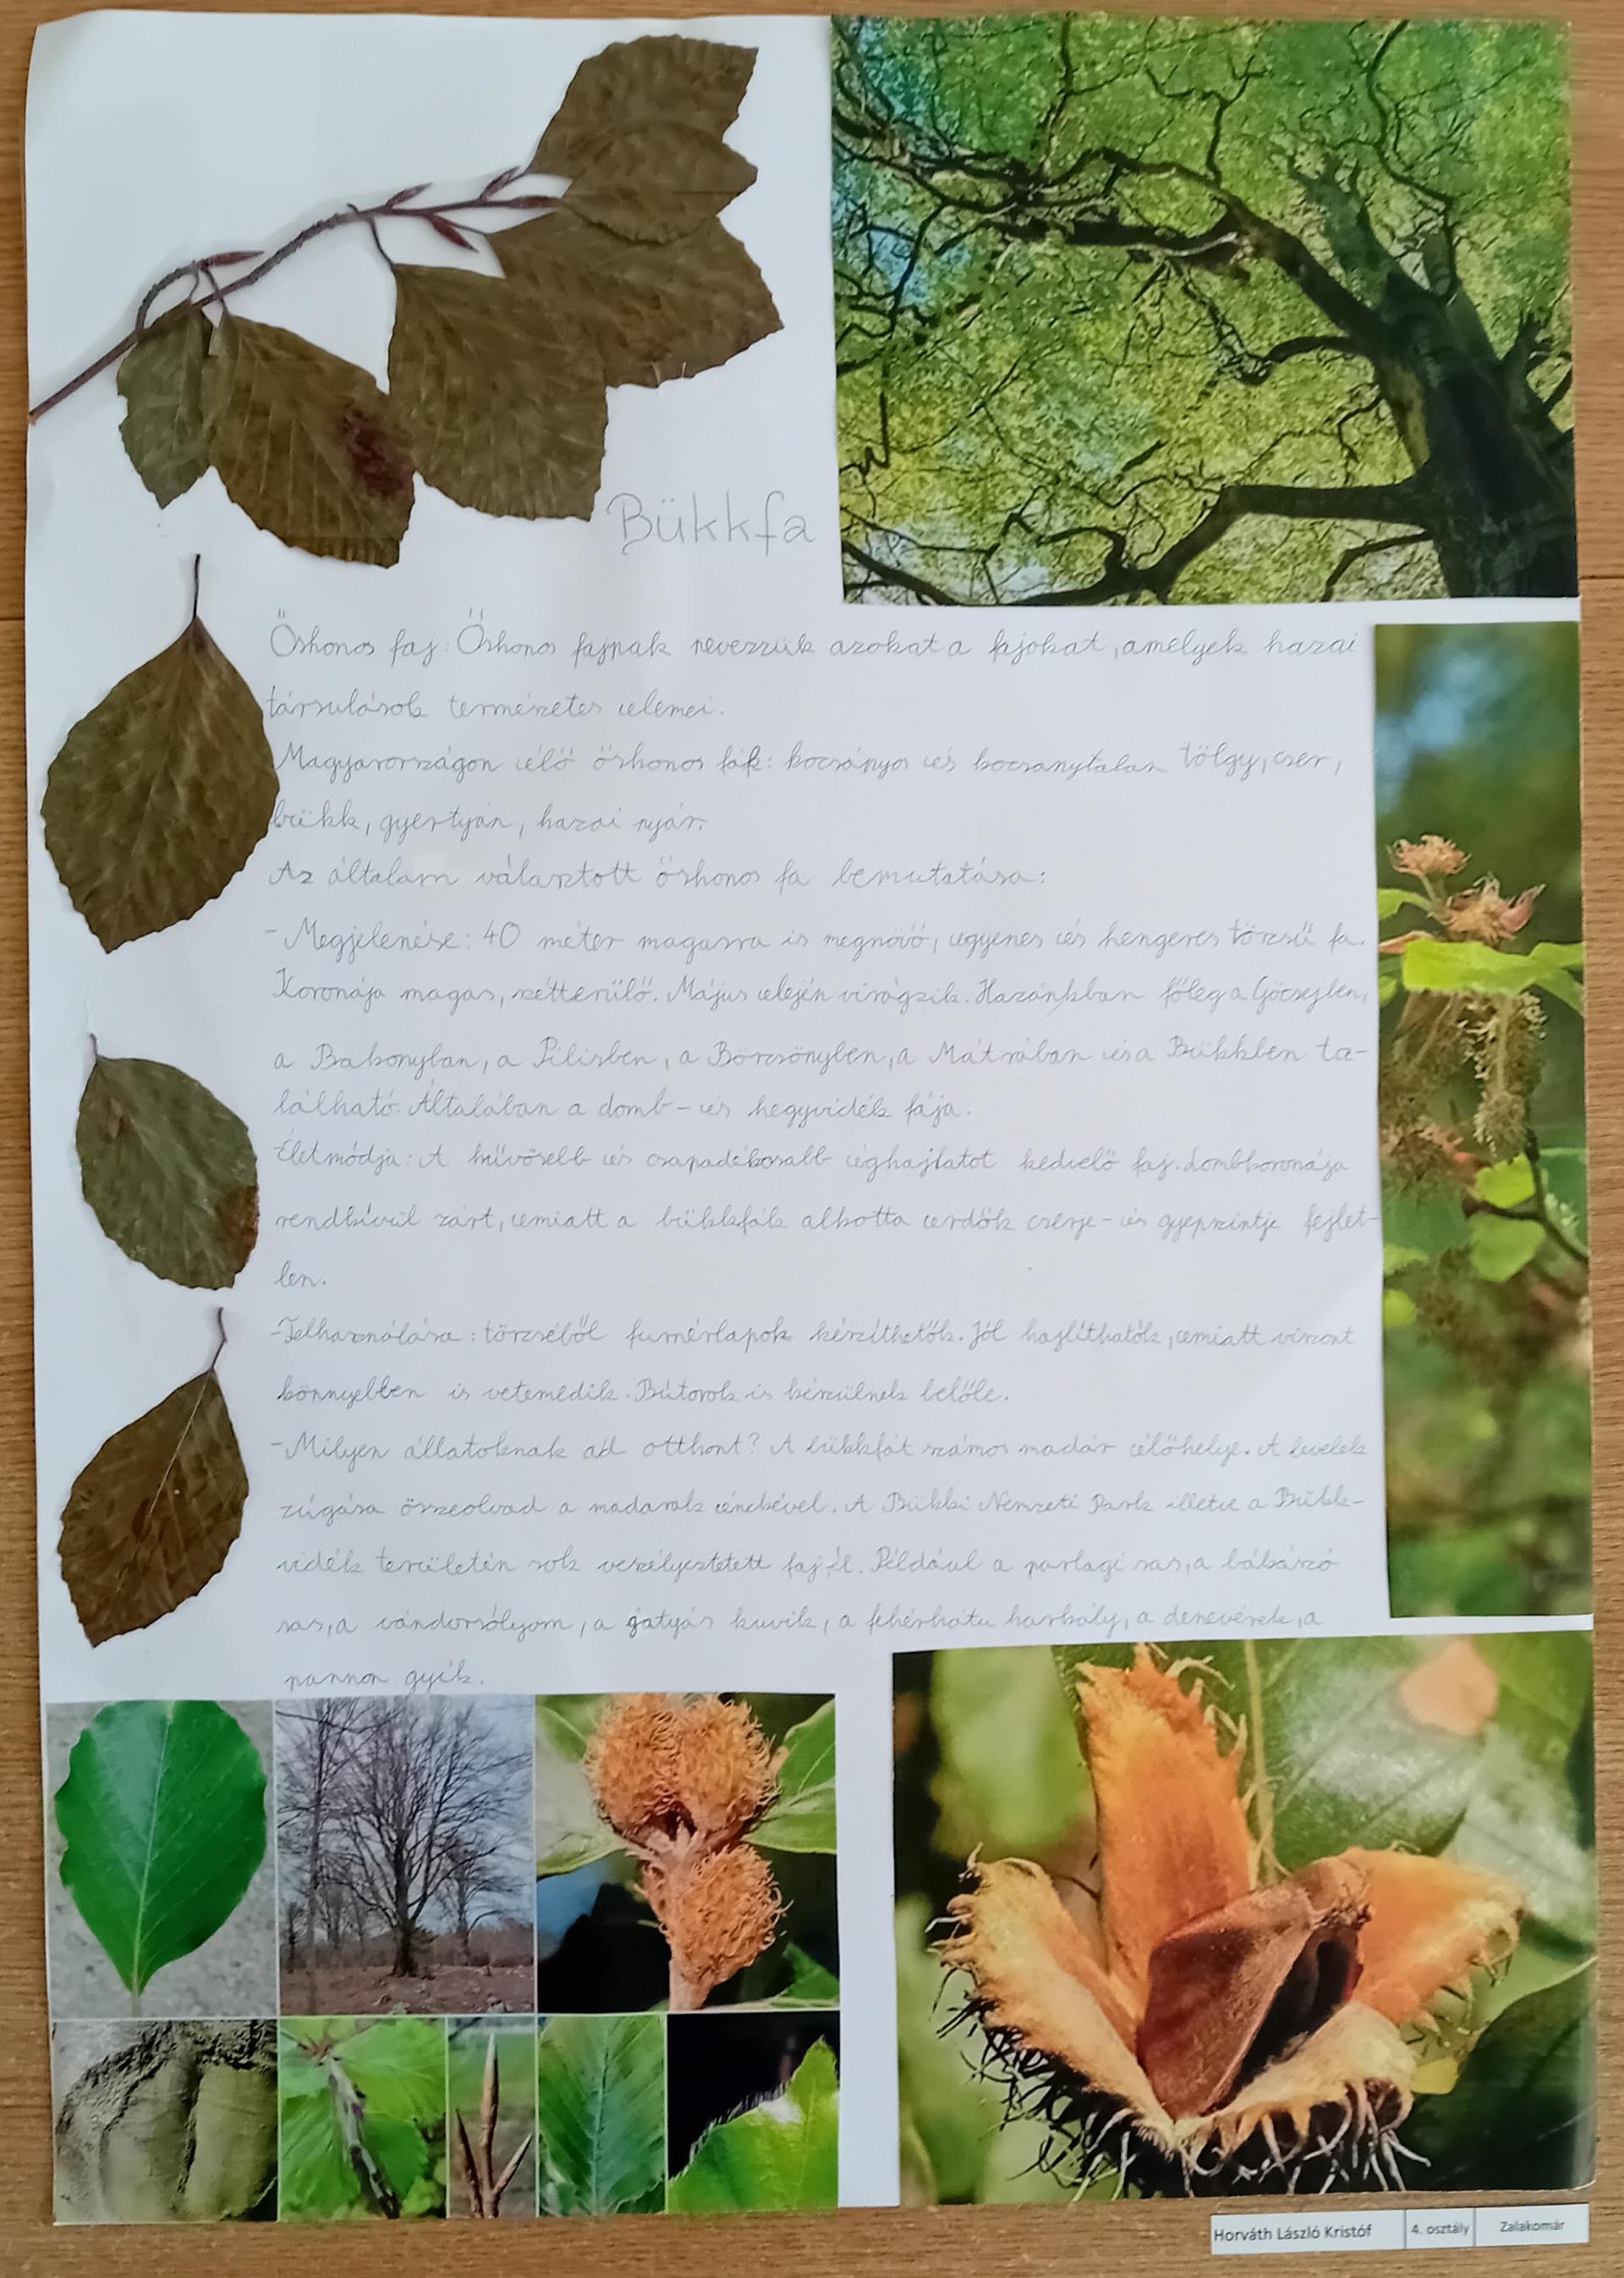 Bükkfa
Őshonos faj: Őshonos fajnak nevezzük azokat a fajokat, amelyek hazai
társulások természetes elemei.
Magyarországon élő őshonos fák: kocsányos és kocsánytalan tölgy, cser,
bükk, gyertyán, hazai nyár.
Az általam választott őshonos fa bemutatása:
- Megjelenése: 40 méter magasra is megnövő, egyenes és hengeres törzsű fa.
Koronája magas, szétterülő. Május elején virágzik. Hazánkban főleg a Göcsejben,
a Bakonyban, a Pilisben, a Börzsönyben, a Mátrában és a Bükkben ta-
lálható. Általában a domb- és hegyvidék fája.
Életmódja: A hűvösebb és csapadékosabb éghajlatot kedvelő faj. Lombkoronája
rendkívül zárt, emiatt a bükkfák alkotta erdők cserje- és gyepszintje fejlet-
len.
-Felhasználása: törzséből furnérlapok készíthetők. Jól hajlíthatók, emiatt viszont
könnyebben is vetemedik. Bútorok is készülnek belőle.
-Milyen állatoknak ad otthont? A bükkfát számos madár élőhelye. A levelek
zúgása összeolvad a madarak énekével. A Bükki Nemzeti Park illetve a Bükk-
vidék területén sok veszélyeztetett faj él. Például a parlagi sas, a békászó
sas, a vándorsólyom, a gatyás kuvik, a fehérhátu harkály, a denevérek, a
pannon gyík.
Horváth László Kristóf 4. osztály Zalakomár